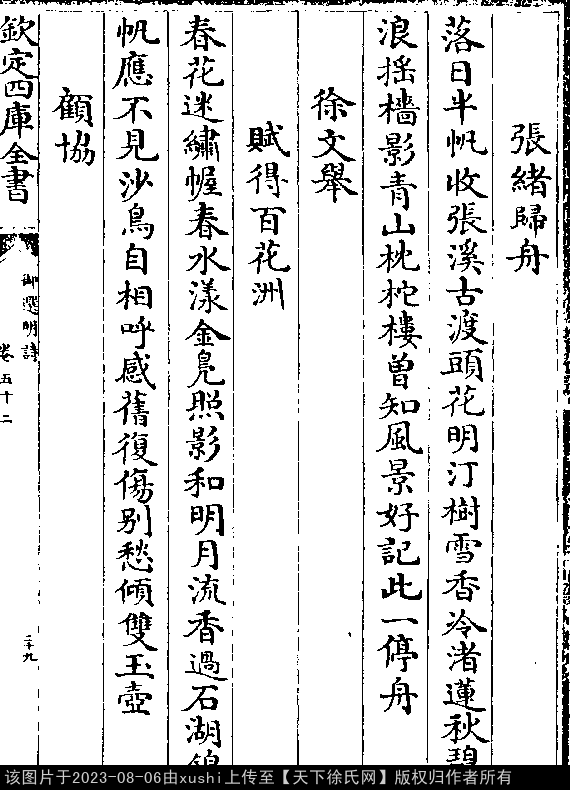 張緒歸舟
落日半帆收張溪古渡頭花明汀樹雪香冷渚蓮秋碧
浪揺檣影青山枕柁樓曽知風景好記此一停舟
徐文舉
賦得百花洲
春花迷繡幄春水漾金鳬照影和明月流香過石湖錦
帆應不見沙鳥自相呼感舊復傷别愁傾雙玉壺
顧協
欽定四庫全書
御選明詩
卷五十二
二十九
该图片于2023-08-06由xushi上传至【天下徐氏网】版权归作者所有